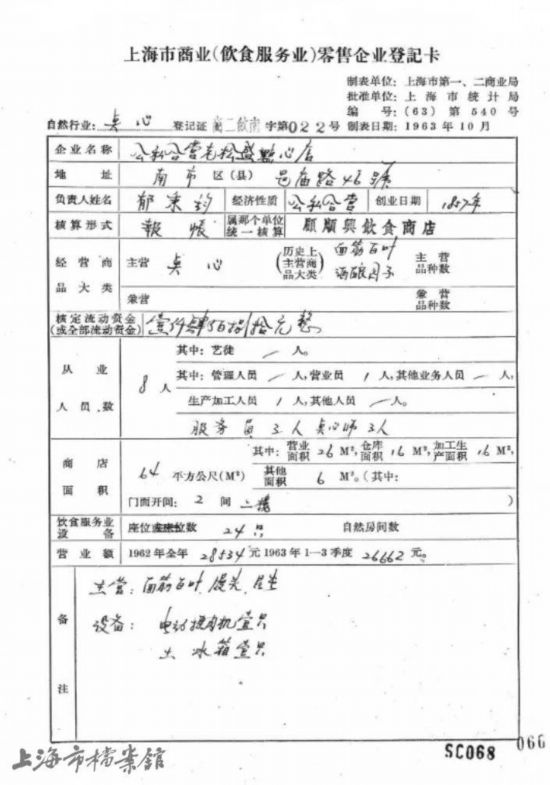 上海市商业(飲食服务业)零售企业登記卡
制表单位: 上海市第一、二商业局
批准单位: 上海市統計局
編号: (63) 第540号
自然行业: 点心 登记証 商二飲南字第022号 制表日期: 1963年10月
企业名称 公私合营老松盛點心店
地址 南市区(县) 邑庙路46號
负责人姓名 郁秉钧 經济性质 公私合营 创业日期 1857年
核算形式 報帳 属那个单位統一核算 顧順興飲食商店
經营商品大类 主营 点心 (历史上主营商品大类) 面筋百叶 酒酿园子 主营品种数
兼营 兼营品种数
核定流动資金(或全部流动資金) 壹仟肆佰捌拾元整
从业人員数 8人 其中: 艺徒 / 人。
其中: 管理人員 / 人, 营业員 1 人, 其他业务人員 / 人,
生产加工人員 1 人, 其他人員 / 人。
服务員 3人 点心师 3人
商店面积 64 平方公尺(M²) 其中: 营业面积 26 M², 仓库面积 16 M², 加工生产面积 16 M²,
其他面积 6 M²。(其中:
門面开間: 2 間 二楼 )
飲食服务业設备 座位或床位数 24只 自然房間数
营业额 1962年全年 28534元 1963年1—3季度 26662元。
备注
主营: 面筋百叶 馒头
设备: 电动搅肉机壹只
土冰箱壹只
上海市檔案館
SC068
066